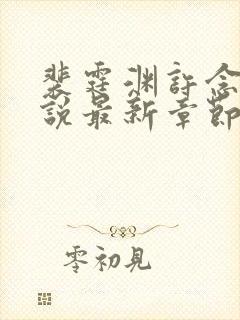 裴霆渊許念
說最新章節
零初見